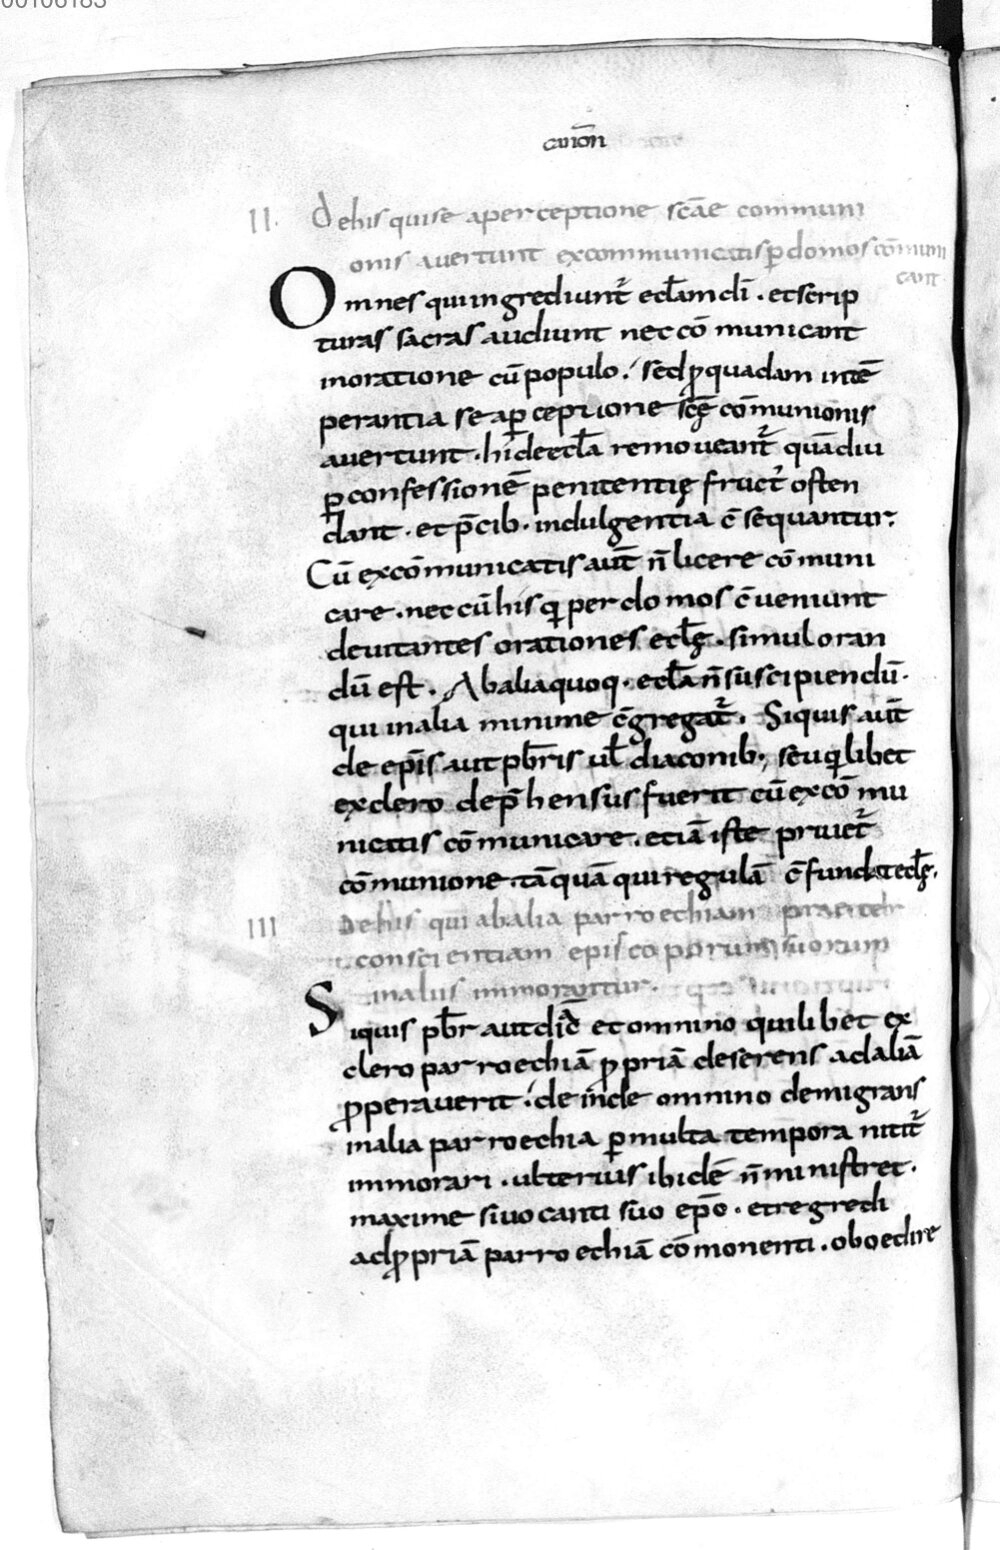 00106183
canōn
II. De his qui se a perceptione scāe communi
onis avertunt excommunicatis ꝑ domos cōmuni
cant.
Omnes qui ingrediunt̄ ecl̄am dī. et scrip
turas sacras audiunt nec cōmunicant
in oratione cū populo. sed ꝓ quadam intē
perantia se a ꝑceptione scę̄ cōmunionis
avertunt. hi de ecl̄a removeant̄ quādiu
ꝑ confessionē penitentię fruct̄ osten
dant. et p̄cib. indulgentiā c̄sequantur.
Cū excōmunicatis aut̄ n̄ licere cōmuni
care. nec cū his q̄ per domos c̄veniunt
devitantes orationes ecl̄ę. simul oran
dū est. Ab alia quoq. ecl̄a n̄ suscipiendū.
qui in alia minime c̄gregat̄. Si quis aut̄
de ep̄is aut pb̄ris ul̄ diaconib; seu q̄libet
ex clero dep̄hensus fuerit cū excōmu
nicatis cōmunicare. etiā iste privet̄
cōmunione. tāquā qui regulā c̄fundat ecl̄ę.
III De his qui ab alia parroechiam praeter
conscientiam episcoporum suorum
in aliis inmorantur.
Si quis pb̄r aut diāc et omnino quilibet ex
clero parroechiā ꝓpriā deserens ad aliā
ꝓperaverit. deinde omnino demigrans
in alia parroechia ꝑ multa tempora nitit̄
inmorari. ulterius ibidē n̄ ministret.
maxime si vocanti suo ep̄o. et regredi
ad ꝓpriā parroechiā cōmonenti. oboedire